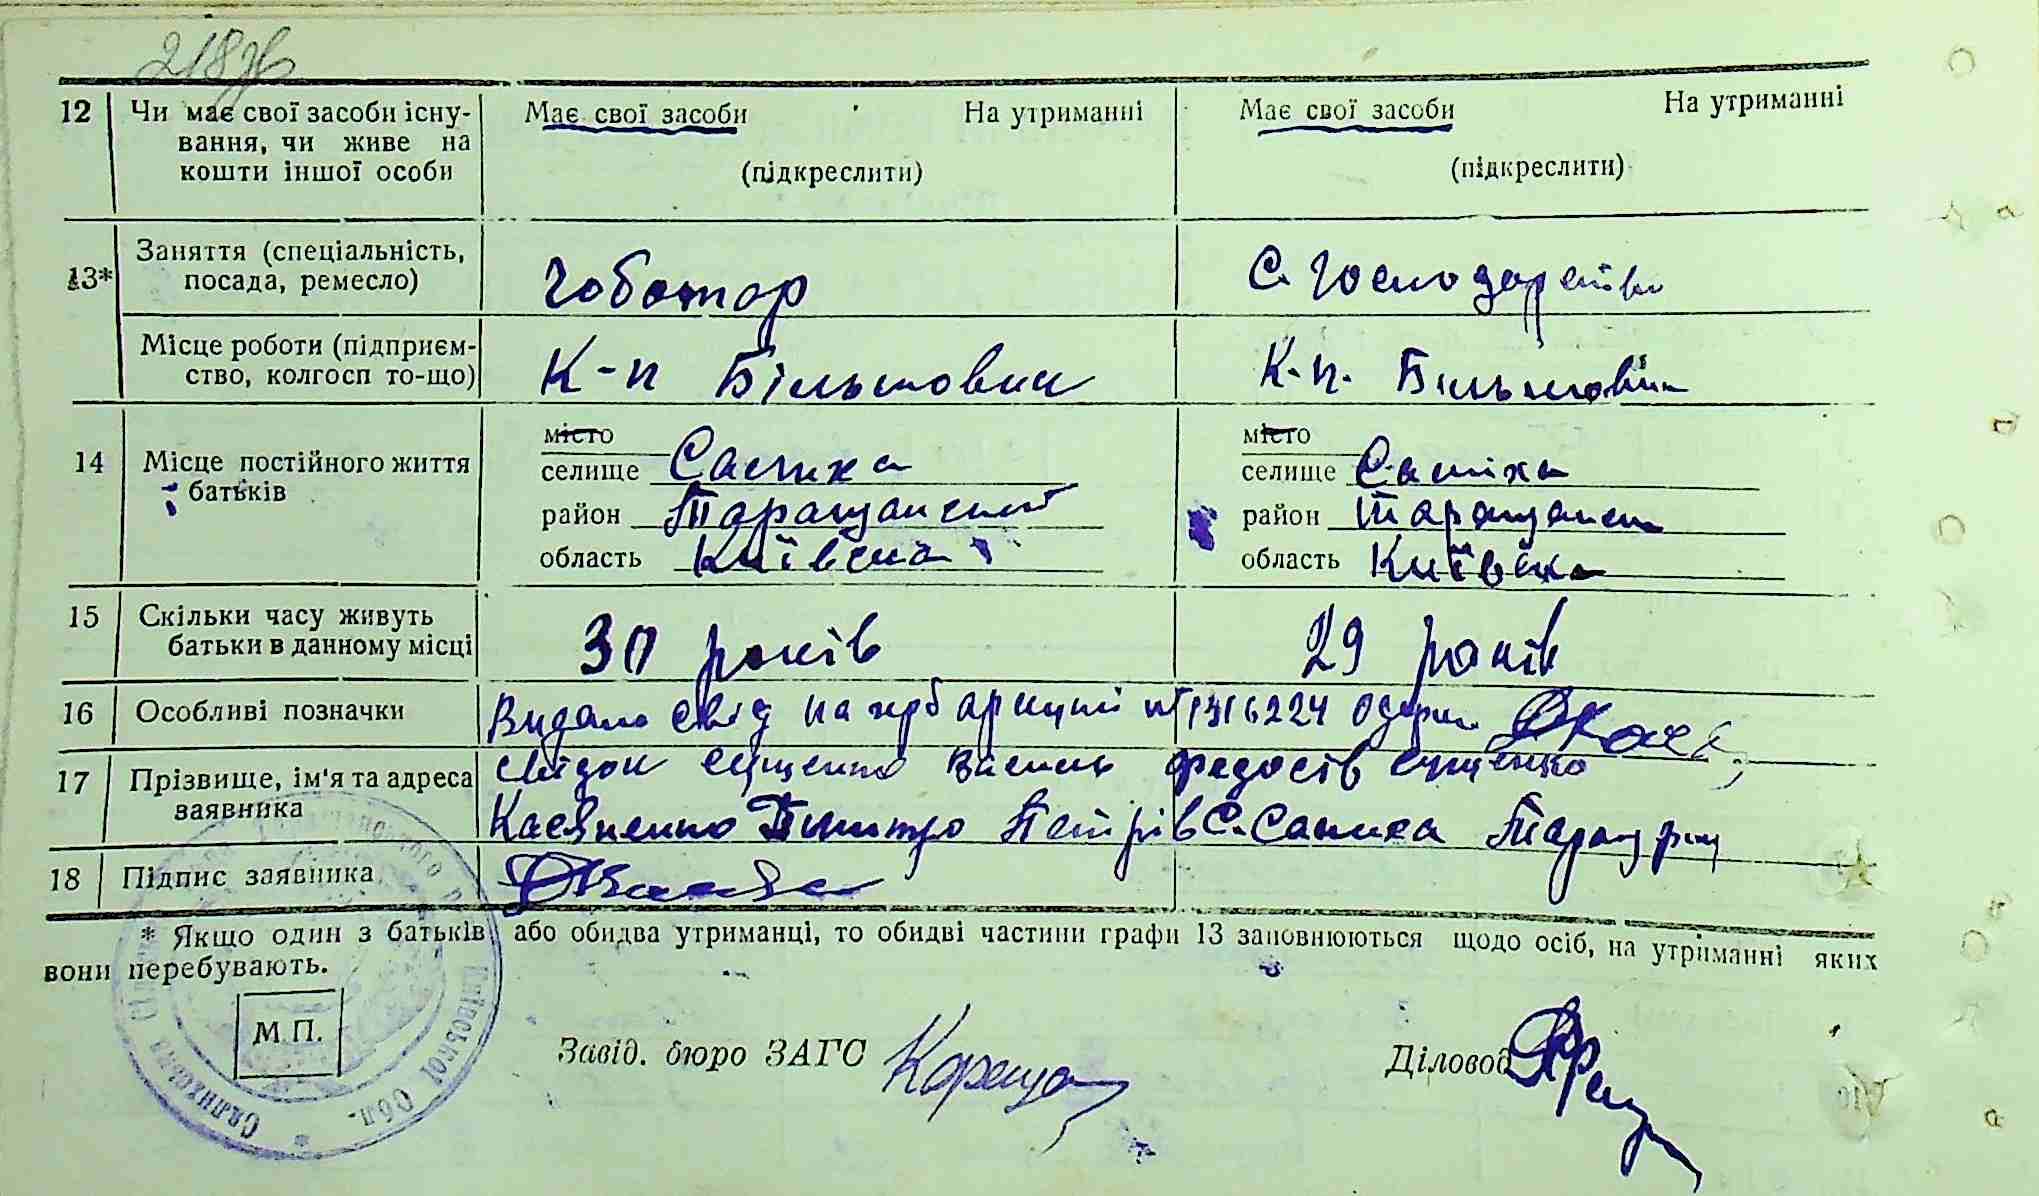 218
12 Чи має свої засоби існу- Має свої засоби На утриманні Має свої засоби На утриманні
вання, чи живе на
кошти іншої особи (підкреслити) (підкреслити)
13* Заняття (спеціальність,
посада, ремесло) Чоботар С. Господарство
Місце роботи (підприєм-
ство, колгосп то-що) К-п Більшовик К.п. Більшовик
14 Місце постійного життя
батьків
місто місто
селище Салиха селище Салиха
район Таращанский район Таращанск
область Київська область Київська
15 Скільки часу живуть
батьки в данному місці 30 років 29 років
16 Особливі позначки Видано свід на гербар №1316224 Одержа
17 Прізвище, ім'я та адреса
заявника
свідок Єщенко Василь Федосів Єщенко
Касяненко Дмитро Петрів С. Салиха Таращ рну
18 Підпис заявника
* Якщо один з батьків або обидва утриманці, то обидві частини графи 13 заповнюються щодо осіб, на утриманні яких
вони перебувають.
М.П.
Завід. бюро ЗАГС Діловод
Київської Обл.